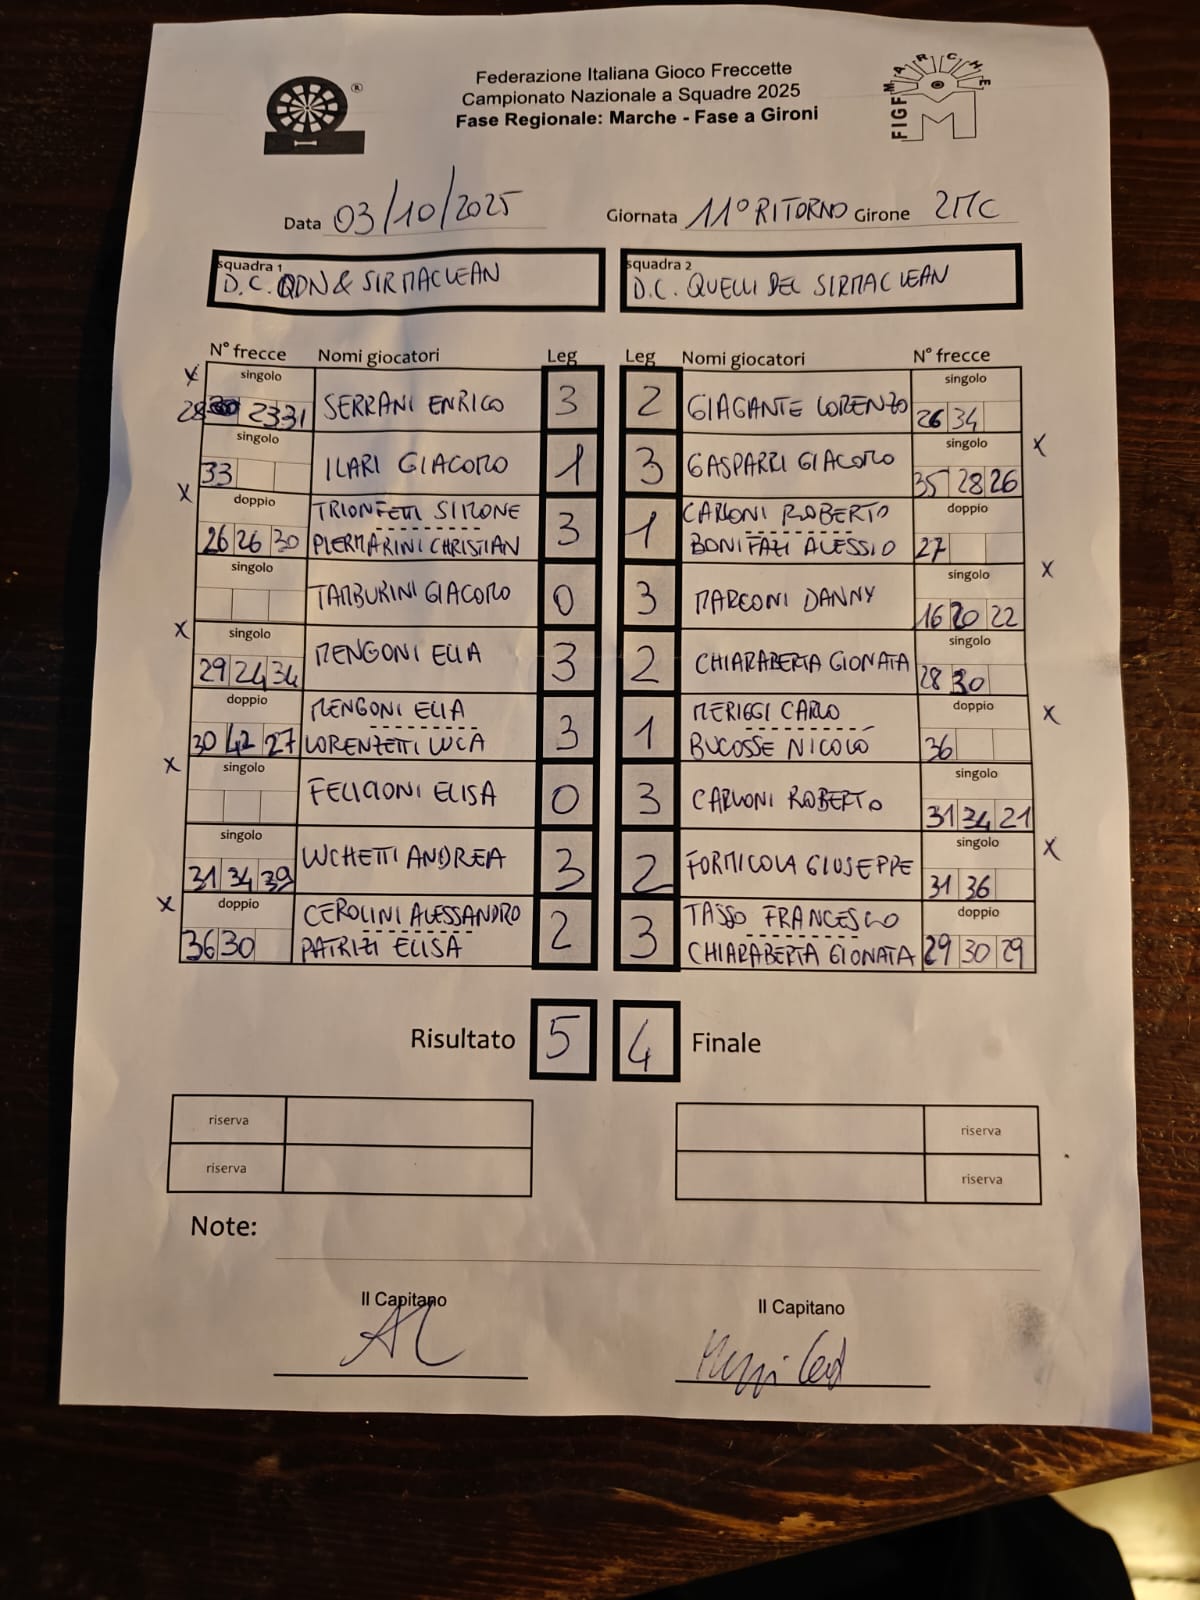 Federazione Italiana Gioco Freccette
Campionato Nazionale a Squadre 2025
Fase Regionale: Marche - Fase a Gironi
®
MARCHE
FIGF
M
Data 03/10/2025 Giornata 11° RITORNO Girone 2MC
squadra 1 squadra 2
D.C. QDN & SIRMACLEAN D.C. QUELLI DEL SIRMACLEAN
N° frecce Nomi giocatori Leg Leg Nomi giocatori N° frecce
X singolo singolo
28 23 31 SERRANI ENRICO 3 2 GIAGANTE LORENZO 26 34
singolo singolo X
33 ILARI GIACOMO 1 3 GASPARRI GIACOMO 35 28 26
X doppio TRIONFETTI SIMONE CARLONI ROBERTO doppio
26 26 30 PIERMARINI CHRISTIAN 3 1 BONIFAZI ALESSIO 27
singolo singolo X
TAMBURINI GIACOMO 0 3 MARCONI DANNY 16 20 22
X singolo singolo
29 24 34 MENGONI ELIA 3 2 CHIARABERTA GIONATA 28 30
doppio MENGONI ELIA MERIGGI CARLO doppio X
30 42 27 LORENZETTI LUCA 3 1 BUCOSSE NICOLÓ 36
X singolo singolo
FELICIONI ELISA 0 3 CARLONI ROBERTO 31 34 21
singolo singolo X
31 34 39 LUCHETTI ANDREA 3 2 FORMICOLA GIUSEPPE 31 36
X doppio CEROLINI ALESSANDRO TASSO FRANCESCO doppio
36 30 PATRIZI ELISA 2 3 CHIARABERTA GIONATA 29 30 29
Risultato 5 4 Finale
riserva riserva
riserva riserva
Note:
Il Capitano Il Capitano